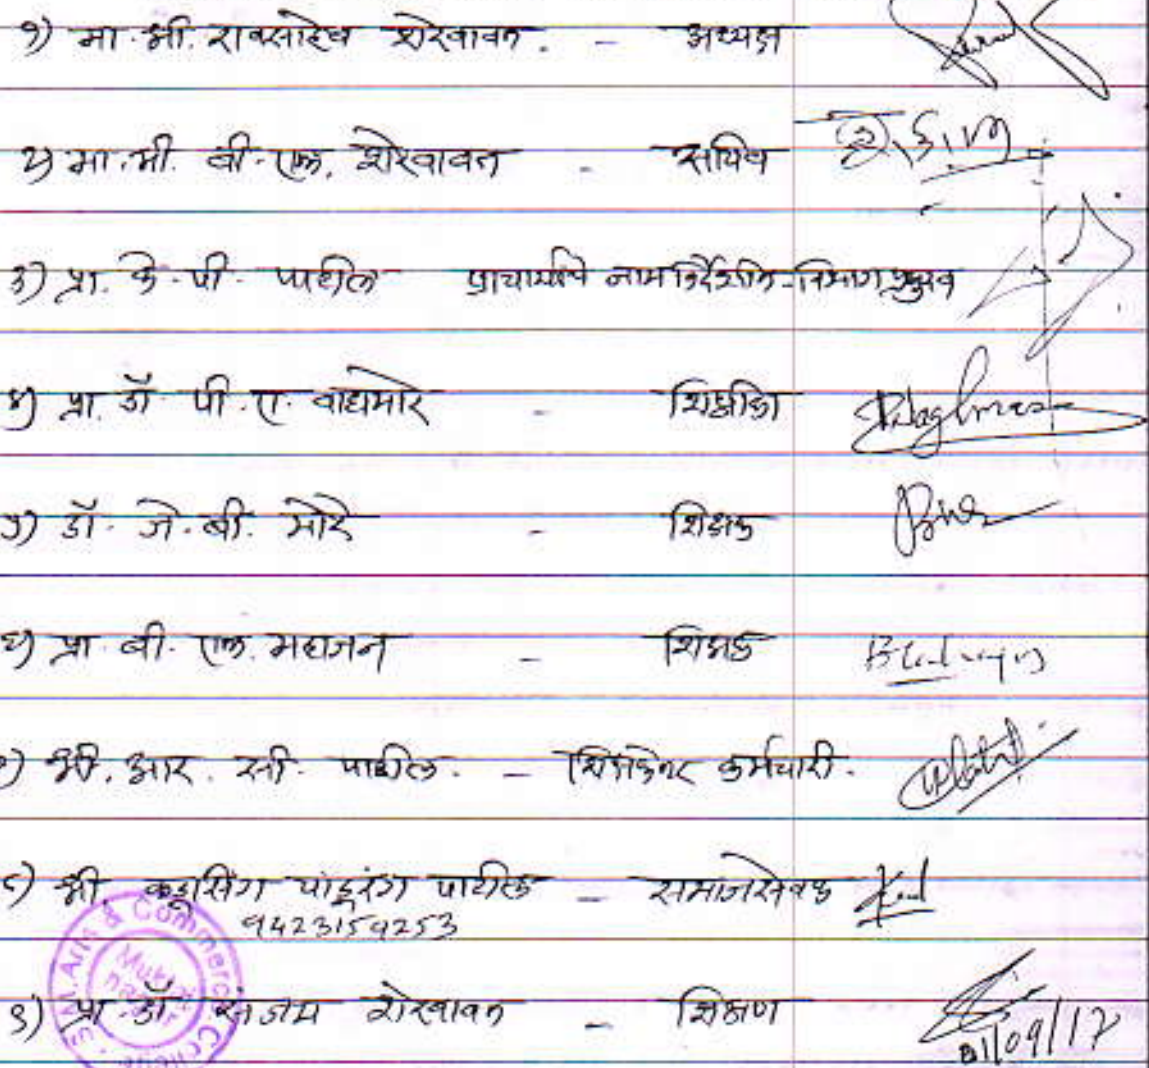 १) मा. श्री. रावसाहेब शेखावत. - अध्यक्ष
२) मा. श्री. बी. एल. शेखावत - सचिव
३) प्रा. के. पी. पाटील प्राचार्यांचे नामनिर्देशित - विभाग प्रमुख
४) प्रा. डॉ पी. ए. वाघमारे - शिक्षीका
५) डॉ. जे. बी. मोरे - शिक्षक
६) प्रा. बी. एल. महाजन - शिक्षक
७) श्री. आर. सी. पाटील. - शिक्षकेत्तर कर्मचारी.
८) श्री. कडूसिंग पांडूरंग पाटील - समाजसेवक
9423159253
९) प्रा. डॉ. संजय शेखावत - शिक्षण
01/09/17
Arts & Commerce College
Muktainagar